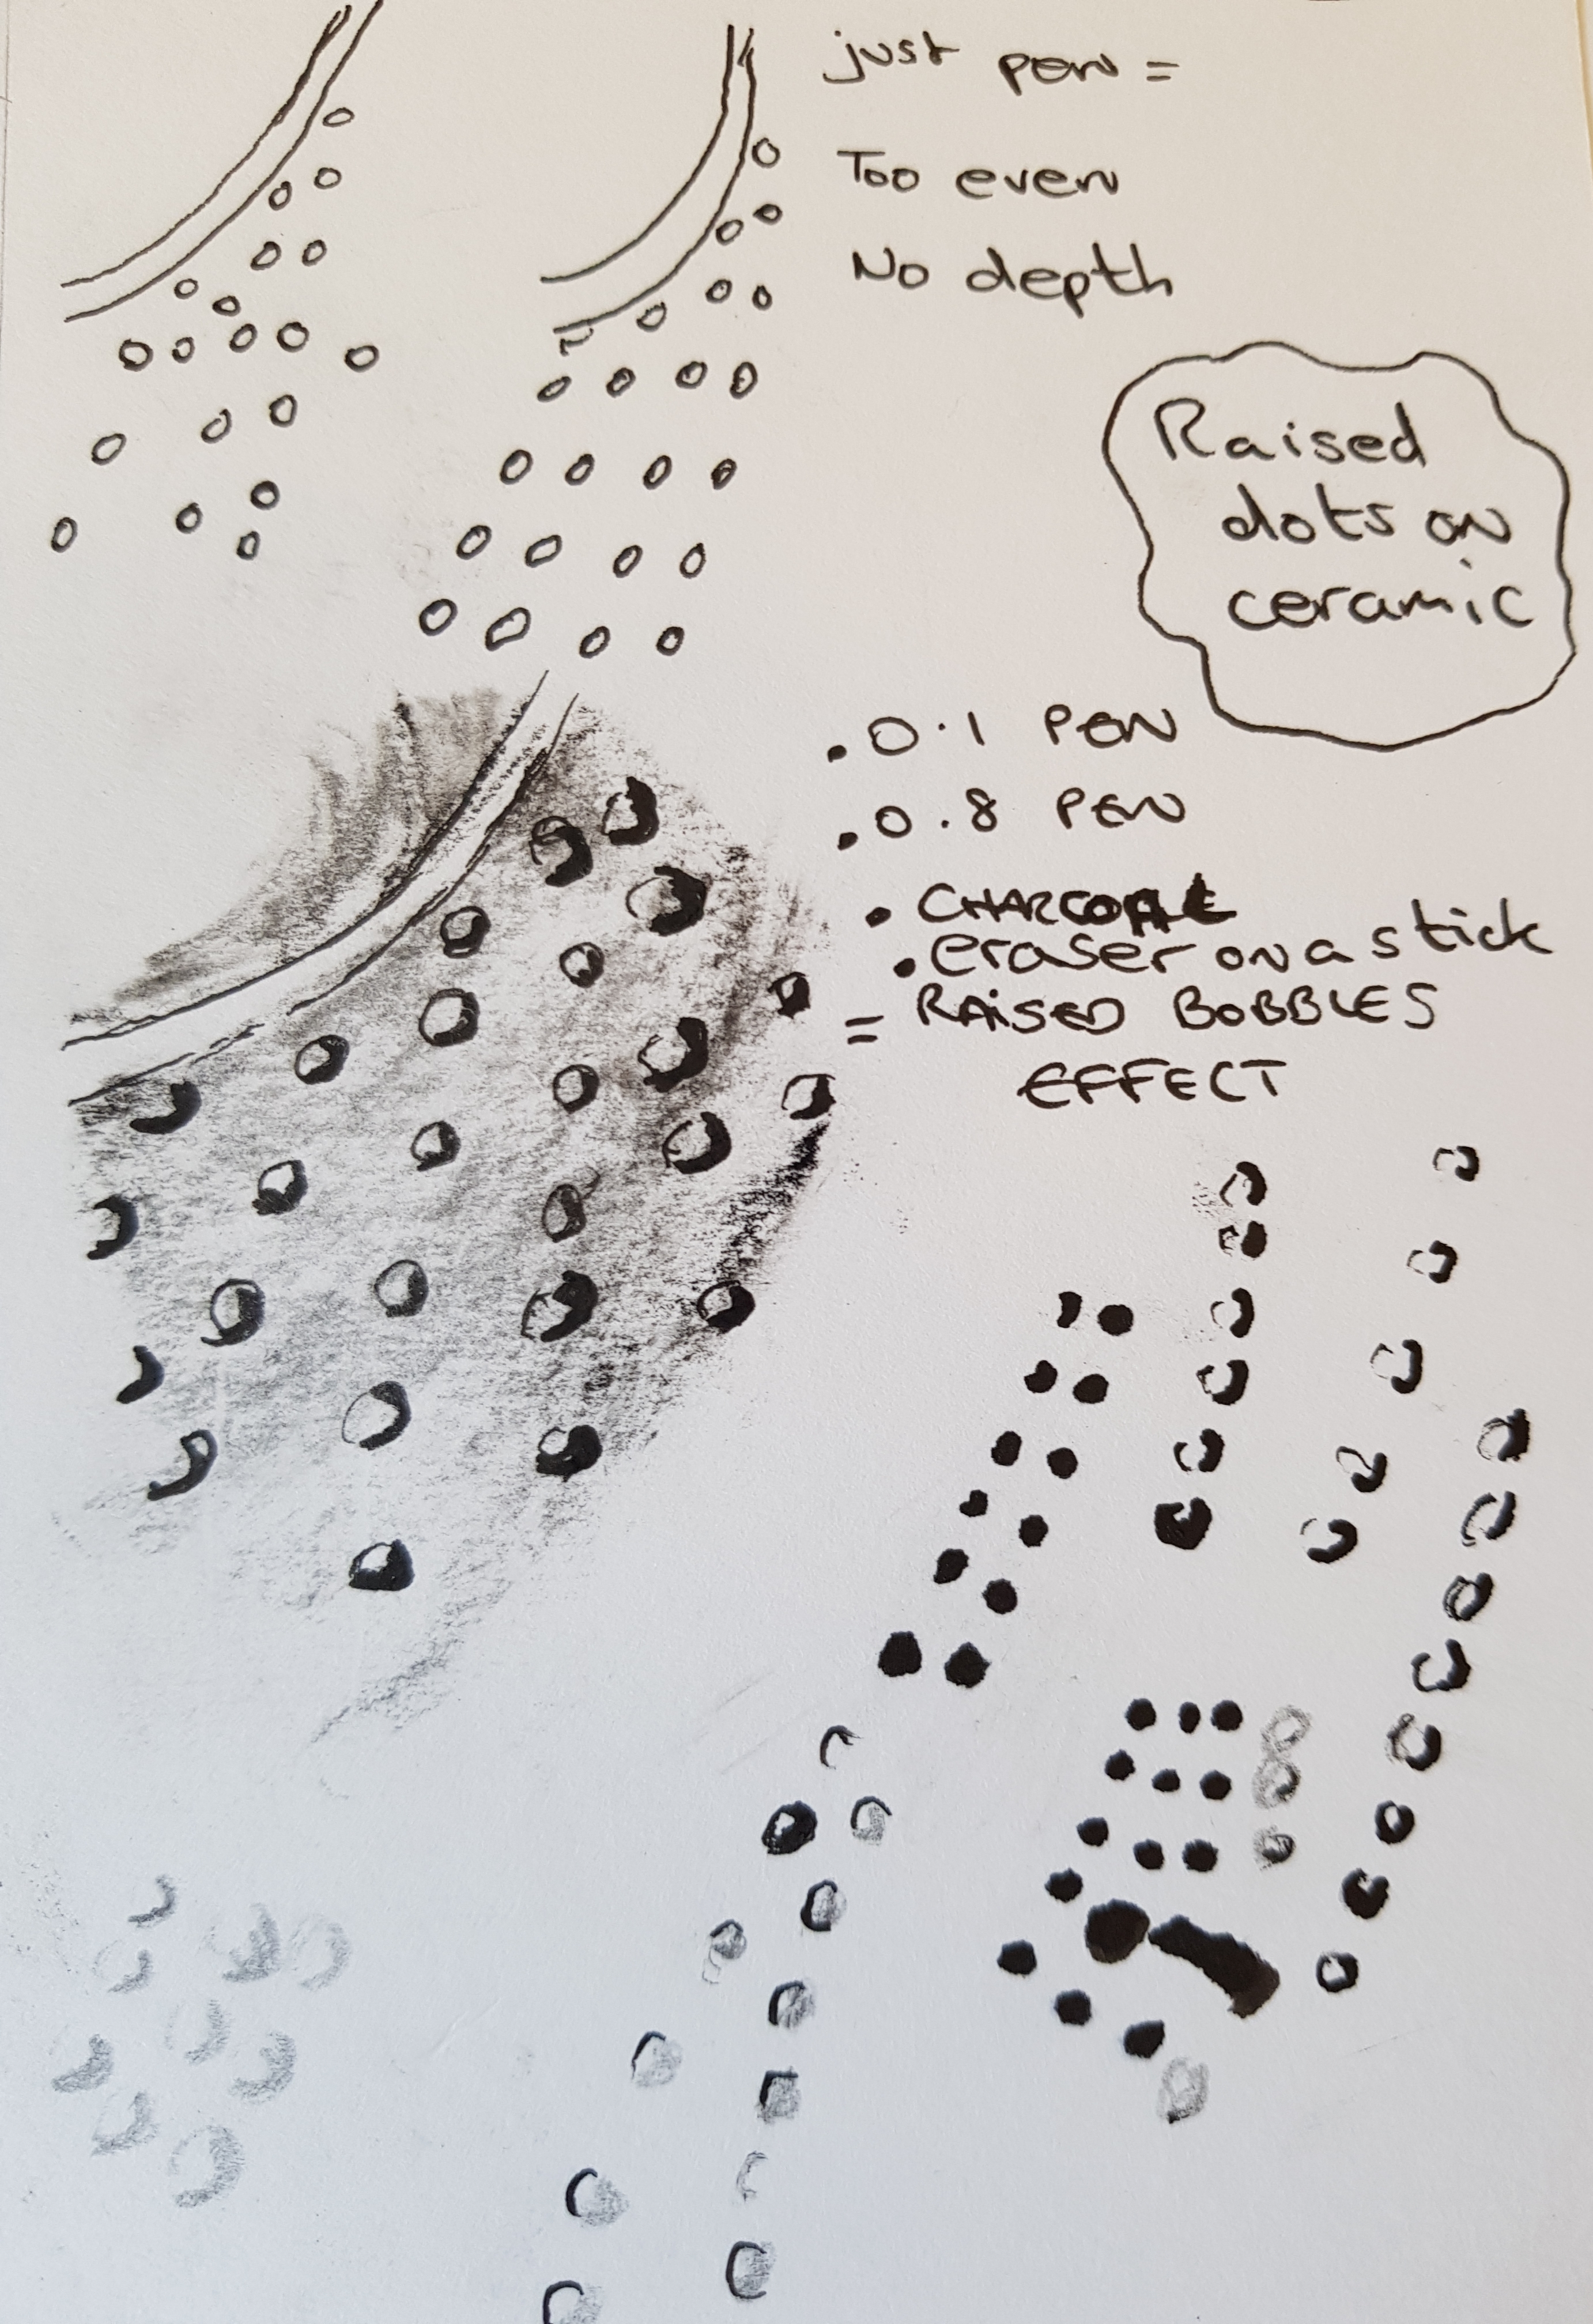 just pen =
Too even
No depth
Raised
dots on
ceramic
.0.1 PEN
.0.8 PEN
• CHARCOAL
• eraser on a stick
= RAISED BOBBLES
EFFECT